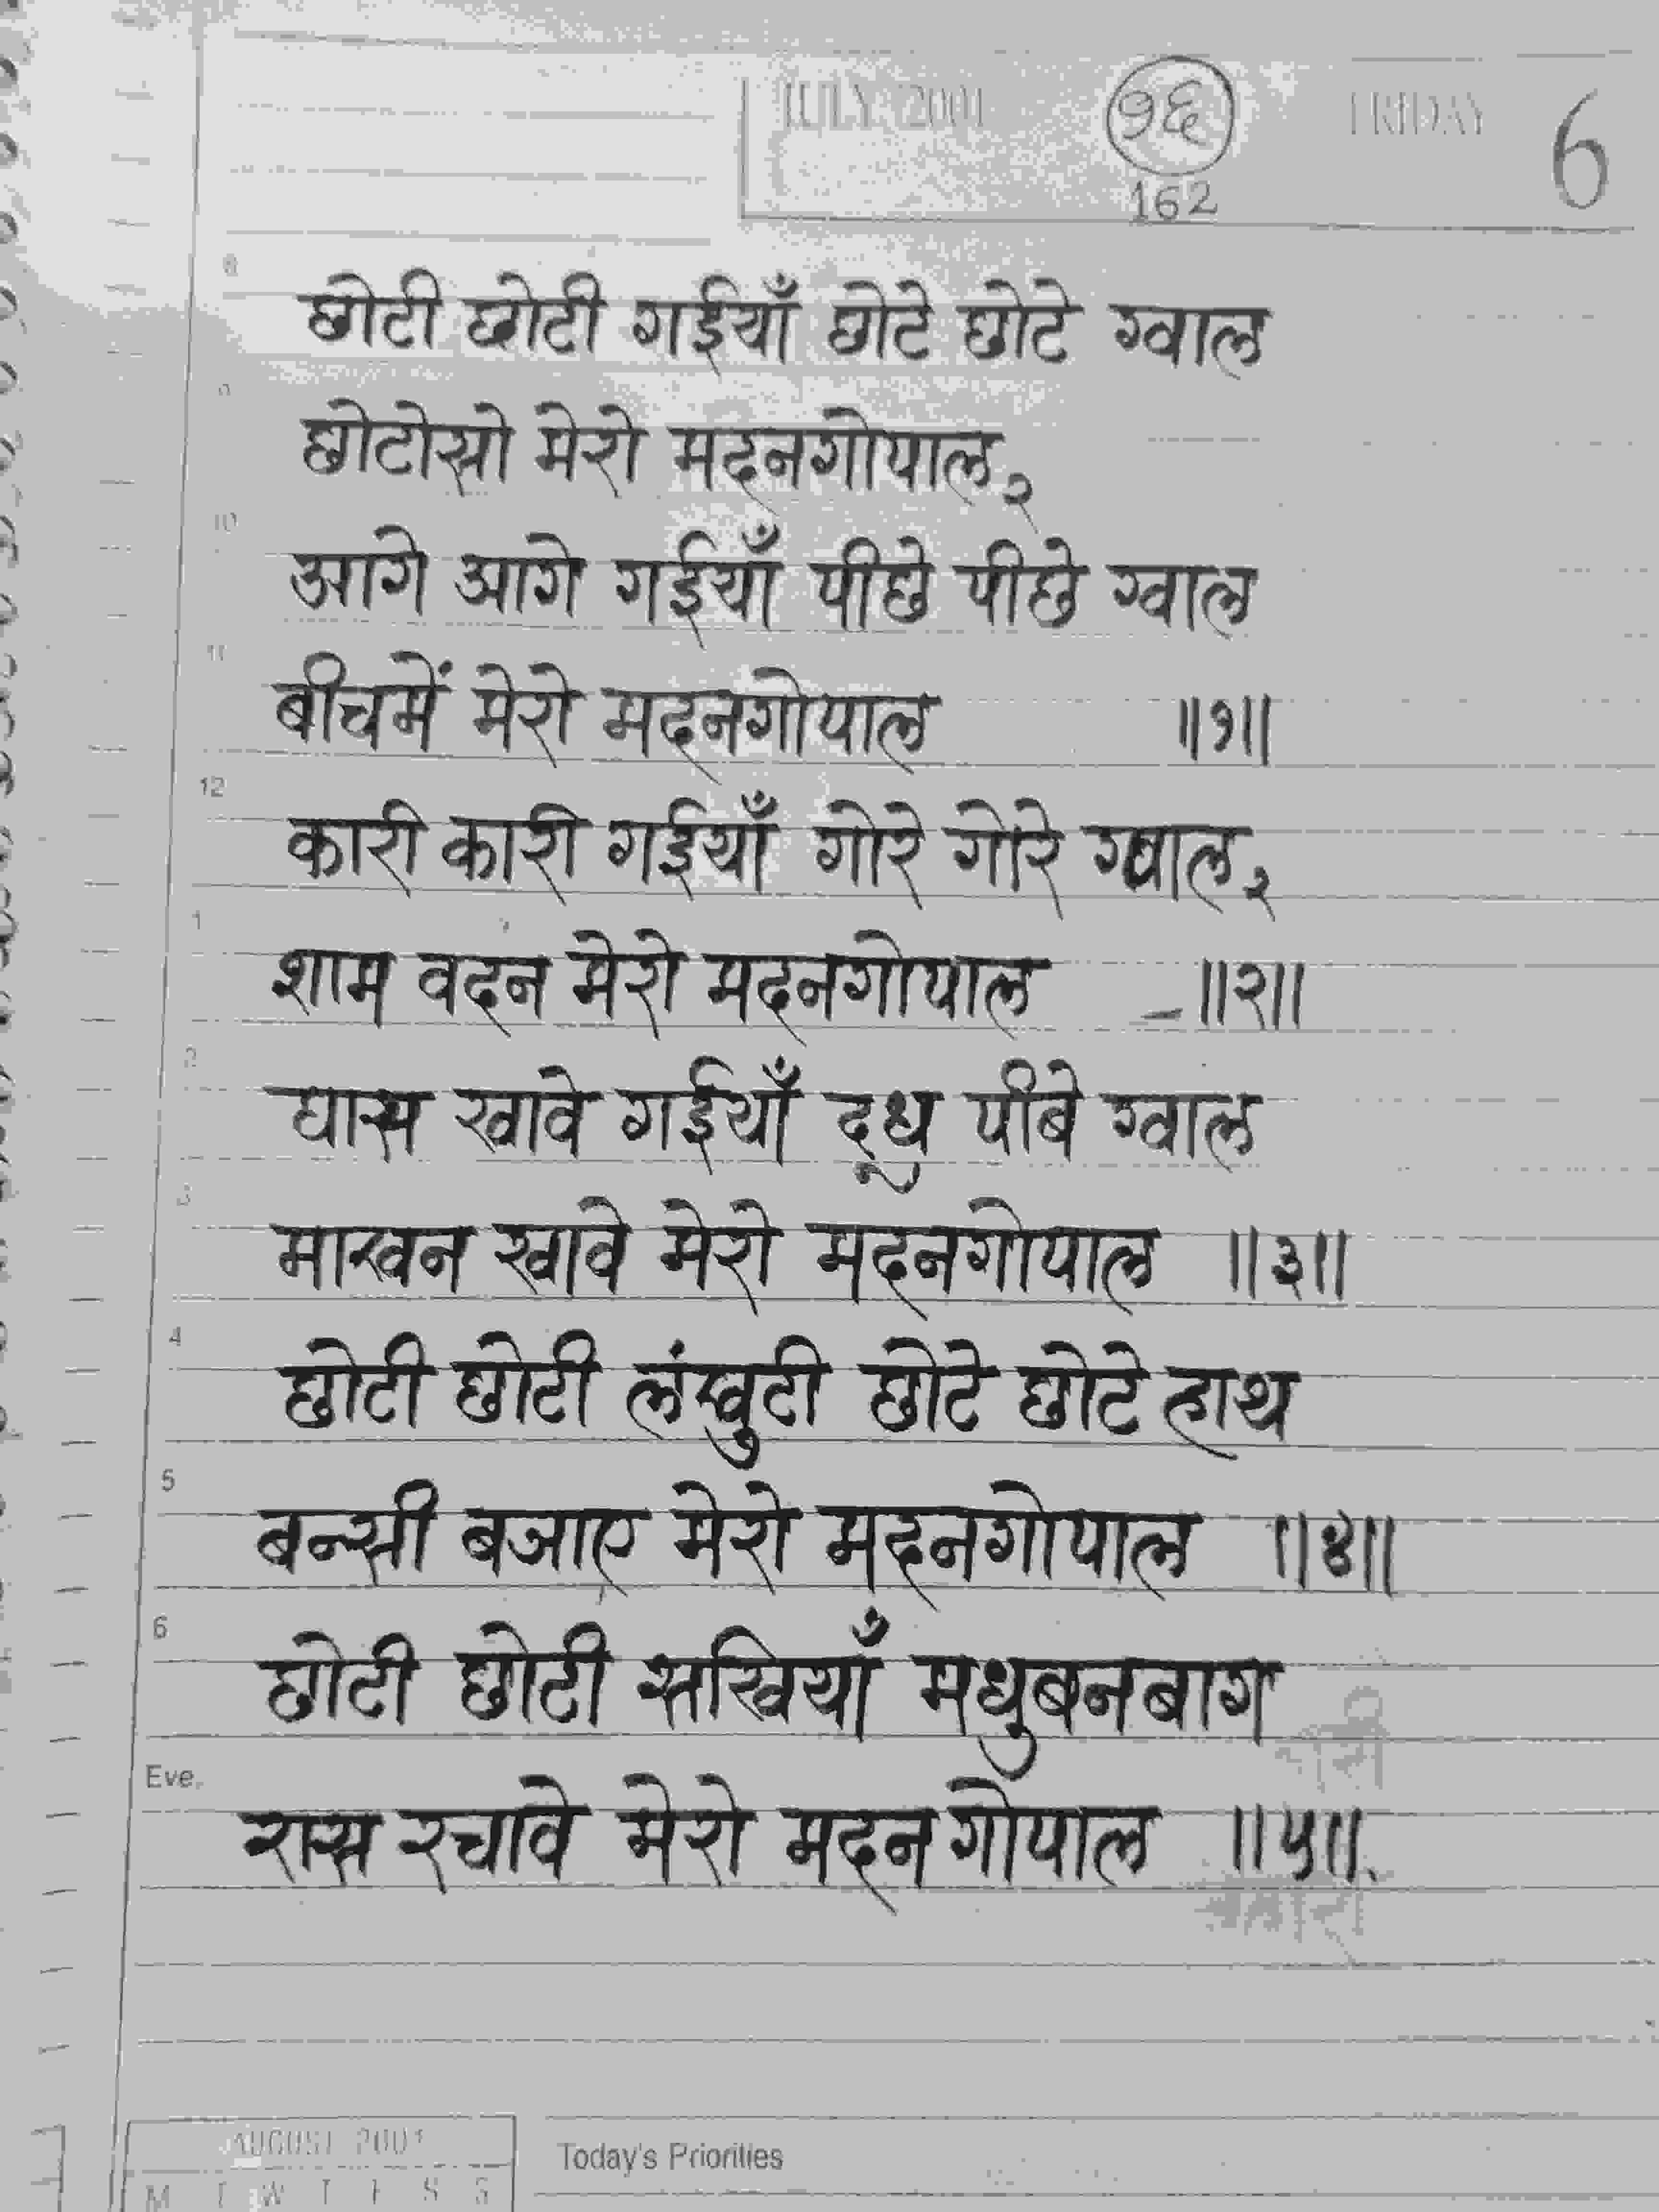 JULY 2001 १६ FRIDAY 6
162
8
छोटी छोटी गईयाँ छोटे छोटे ग्वाल
9
छोटोसो मेरो मदनगोपाल २
10
आगे आगे गईयाँ पीछे पीछे ग्वाल
11
बीचमें मेरो मदनगोपाल ॥१॥
12
कारी कारी गईयाँ गोरे गोरे ग्वाल २
1
शाम वदन मेरो मदनगोपाल -॥२॥
2
घास खावे गईयाँ दूध पीबे ग्वाल
3
माखन खावे मेरो मदनगोपाल ॥३॥
4
छोटी छोटी लंखुटी छोटे छोटे हाथ
5
बन्सी बजाए मेरो मदनगोपाल ॥४॥
6
छोटी छोटी सखियाँ मधुबनबाग
Eve.
रास रचावे मेरो मदनगोपाल ॥५॥.
AUGUST 2001 Today's Priorities
M T W T F S S